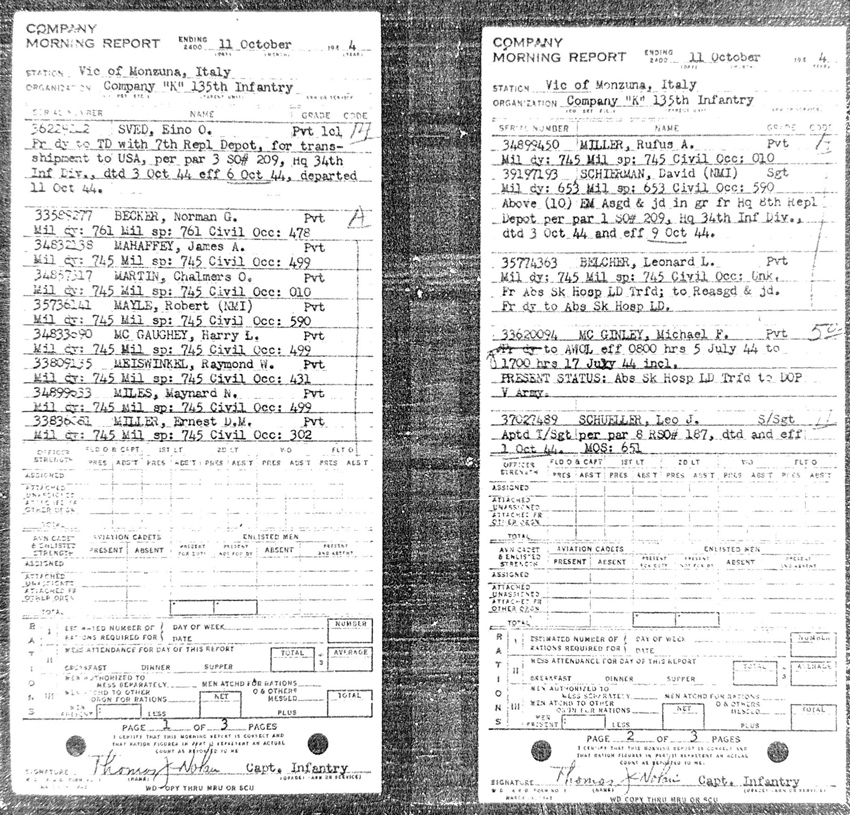 COMPANY
MORNING REPORT ENDING 2400 11 October 194 4
STATION Vic of Monzuna, Italy
ORGANIZATION Company "K" 135th Infantry
SERIAL NUMBER NAME GRADE CODE
SVED, Eino O. Pvt 1cl
Fr dy to TD with 7th Repl Depot, for trans-
shipment to USA, per par 3 SO# 209, Hq 34th
Inf Div., dtd 3 Oct 44 eff 6 Oct 44, departed
11 Oct 44.
33589277 BECKER, Norman G. Pvt A
Mil dy: 761 Mil sp: 761 Civil Occ: 478
34832138 MAHAFFEY, James A. Pvt
Mil dy: 745 Mil sp: 745 Civil Occ: 499
34857317 MARTIN, Chalmers O. Pvt
Mil dy: 745 Mil sp: 745 Civil Occ: 010
35736141 MAYLE, Robert (NMI) Pvt
Mil dy: 745 Mil sp: 745 Civil Occ: 590
34833590 MC GAUGHEY, Harry L. Pvt
Mil dy: 745 Mil sp: 745 Civil Occ: 499
33809135 MEISWINKEL, Raymond W. Pvt
Mil dy: 745 Mil sp: 745 Civil Occ: 431
34899633 MILES, Maynard N. Pvt
Mil dy: 745 Mil sp: 745 Civil Occ: 499
MILLER, Ernest D.M. Pvt
Mil dy: 745 Mil sp: 745 Civil Occ: 302
OFFICER STRENGTH FLD O & CAPT 1ST LT 2D LT W O FLT O
PRES ABS'T PRES ABS'T PRES ABS'T PRES ABS'T PRES ABS'T
ASSIGNED
ATTACHED UNASSIGNED
ATTACHED FR OTHER ORGN
TOTAL
AVN CADET & ENLISTED STRENGTH AVIATION CADETS ENLISTED MEN
PRESENT ABSENT PRESENT FOR DUTY PRESENT NOT FOR DY ABSENT PRESENT AND ABSENT
ASSIGNED
ATTACHED UNASSIGNED
ATTACHED FR OTHER ORGN
TOTAL
RATIONS
I ESTIMATED NUMBER OF RATIONS REQUIRED FOR DAY OF WEEK DATE NUMBER
II MESS ATTENDANCE FOR DAY OF THIS REPORT TOTAL ÷ 3 AVERAGE
BREAKFAST DINNER SUPPER
III MEN AUTHORIZED TO MESS SEPARATELY MEN ATCHD FOR RATIONS
MEN ATCHD TO OTHER ORGN FOR RATIONS NET O & OTHERS MESSED TOTAL
MEN PRESENT LESS PLUS
PAGE 1 OF 3 PAGES
I CERTIFY THAT THIS MORNING REPORT IS CORRECT AND
THAT RATION FIGURES IN PART II REPRESENT AN ACTUAL
COUNT AS REPORTED TO ME
SIGNATURE Thomas J Capt. Infantry
(NAME) (GRADE) (ARM OR SERVICE)
WD COPY THRU MRU OR SCU
COMPANY
MORNING REPORT ENDING 2400 11 October 194 4
STATION Vic of Monzuna, Italy
ORGANIZATION Company "K" 135th Infantry
SERIAL NUMBER NAME GRADE CODE
34899450 MILLER, Rufus A. Pvt
Mil dy: 745 Mil sp: 745 Civil Occ: 010
39197193 SCHIERMAN, David (NMI) Sgt
Mil dy: 653 Mil sp: 653 Civil Occ: 590
Above (10) EM Asgd & jd in gr fr Hq 8th Repl
Depot per par 1 SO# 209, Hq 34th Inf Div.,
dtd 3 Oct 44 and eff 9 Oct 44.
35774363 BELCHER, Leonard L. Pvt
Mil dy: 745 Mil sp: 745 Civil Occ: Unk.
Fr Abs Sk Hosp LD Trfd; to Reasgd & jd.
Fr dy to Abs Sk Hosp LD.
33620094 MC GINLEY, Michael F. Pvt
Fr dy to AWOL eff 0800 hrs 5 July 44 to
1700 hrs 17 July 44 incl.
PRESENT STATUS: Abs Sk Hosp LD Trfd to DOP
V Army.
37027489 SCHUELLER, Leo J. S/Sgt
Aptd T/Sgt per par 8 RSO# 187, dtd and eff
1 Oct 44. MOS: 651
OFFICER STRENGTH FLD O & CAPT 1ST LT 2D LT W O FLT O
PRES ABS'T PRES ABS'T PRES ABS'T PRES ABS'T PRES ABS'T
ASSIGNED
ATTACHED UNASSIGNED
ATTACHED FR OTHER ORGN
TOTAL
AVN CADET & ENLISTED STRENGTH AVIATION CADETS ENLISTED MEN
PRESENT ABSENT PRESENT FOR DUTY PRESENT NOT FOR DY ABSENT PRESENT AND ABSENT
ASSIGNED
ATTACHED UNASSIGNED
ATTACHED FR OTHER ORGN
TOTAL
RATIONS
I ESTIMATED NUMBER OF RATIONS REQUIRED FOR DAY OF WEEK DATE NUMBER
II MESS ATTENDANCE FOR DAY OF THIS REPORT TOTAL ÷ 3 AVERAGE
BREAKFAST DINNER SUPPER
III MEN AUTHORIZED TO MESS SEPARATELY MEN ATCHD FOR RATIONS
MEN ATCHD TO OTHER ORGN FOR RATIONS NET O & OTHERS MESSED TOTAL
MEN PRESENT LESS PLUS
PAGE 2 OF 3 PAGES
I CERTIFY THAT THIS MORNING REPORT IS CORRECT AND
THAT RATION FIGURES IN PART II REPRESENT AN ACTUAL
COUNT AS REPORTED TO ME
SIGNATURE Thomas J Capt. Infantry
(NAME) (GRADE) (ARM OR SERVICE)
WD COPY THRU MRU OR SCU